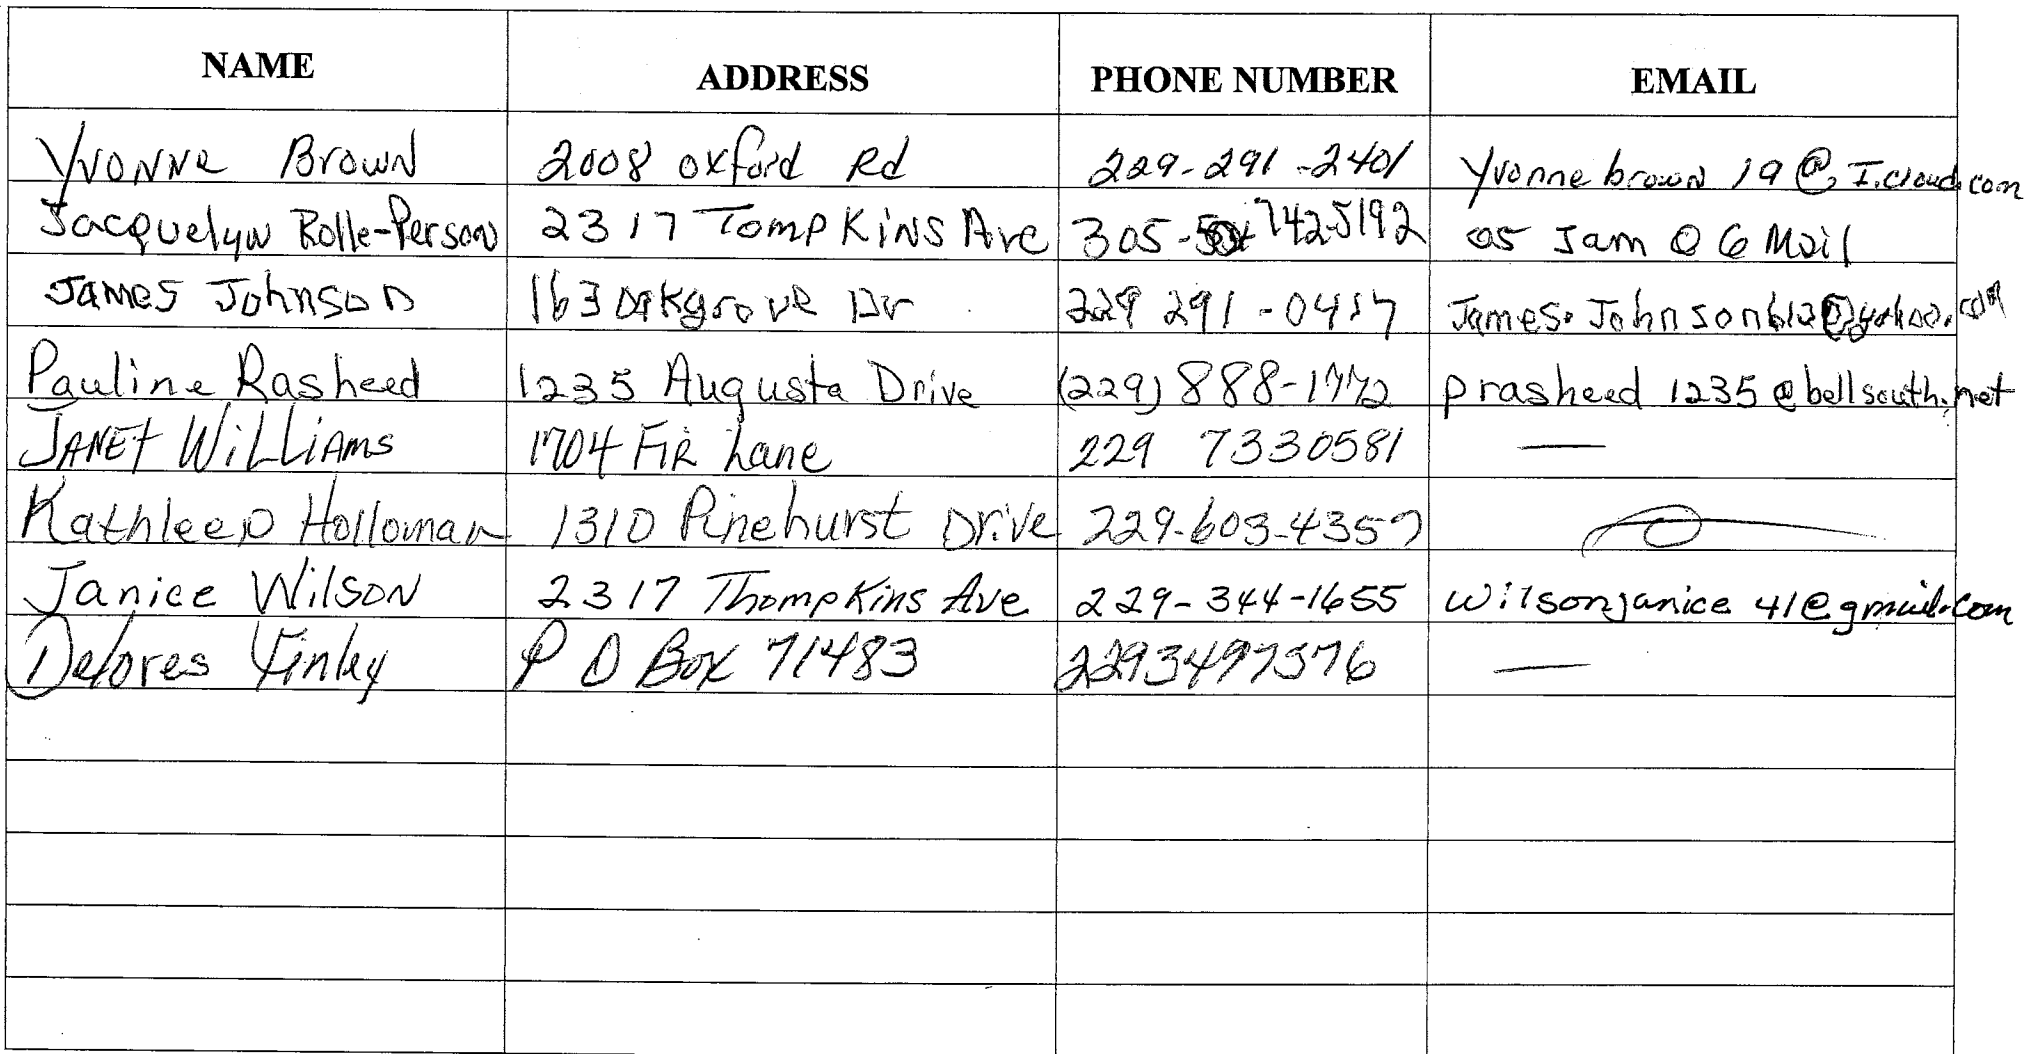 NAME ADDRESS PHONE NUMBER EMAIL
Yvonne Brown 2008 oxford Rd 229-291-2401 Yvonne brown 19@I.cloud.com
Jacquelyn Rolle-Person 2317 Tompkins Ave 305- 742-5192 05 Jam @ G Mail
James Johnson 163 Oakgrove Dr 229 291-0417 James.Johnson612@yahoo.com
Pauline Rasheed 1235 Augusta Drive (229) 888-1772 prasheed 1235@bellsouth.net
JANET WiLLiAMS 1704 FIR Lane 229 7330581 —
Kathleen Holloman 1310 Pinehurst Drive 229-603-4357
Janice Wilson 2317 Thompkins Ave 229-344-1655 wilsonjanice 41@gmail.com
Delores Finley P O Box 71483 2293497376 —